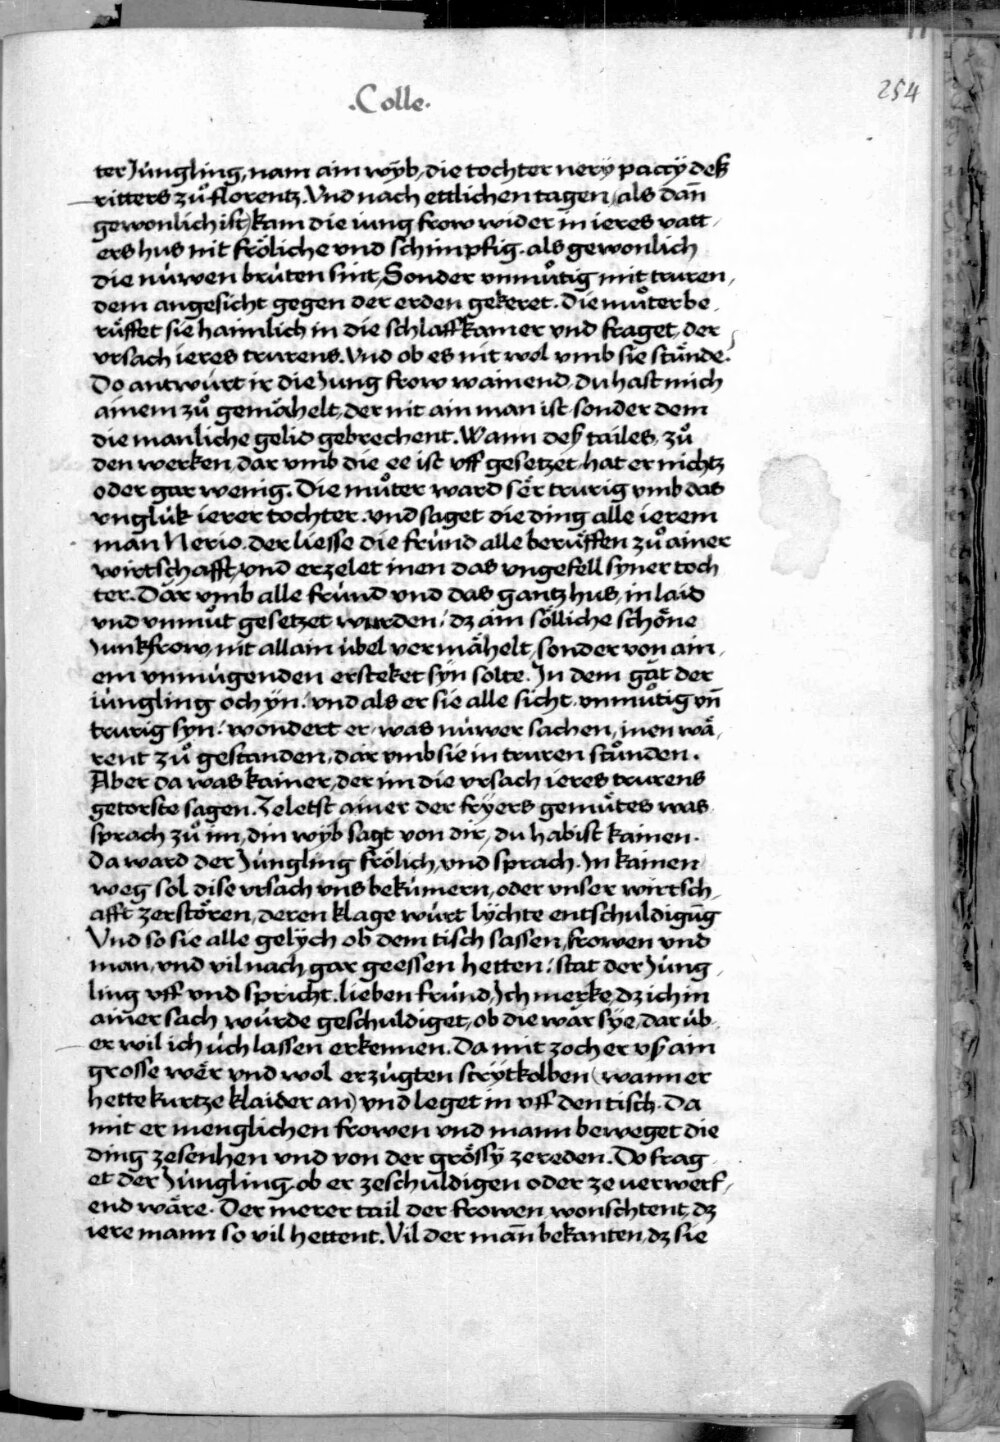 .Colle.
254
ter Jüngling, nam ain wÿb, die tochter nerÿ paccÿ deß
ritters zuͦ florentz. Vnd nach ettlichen tagen (als dan̄
gewonlich ist) kam die iung frow wider in ieres vatt
ers hus nit fröliche vnd schimpfig. als gewonlich
die nüwen brüten sint, Sonder vnmuͦtig mit truren,
dem angesicht gegen der erden gekeret. Die muͦter be,
rüffet sie hamlich in die schlaffkamer vnd fraget, der
vrsach ieres trurens. Vnd ob es nit wol vmb sie stünde.
Do antwürt ir die Jung frow wainend, du hast mich
ainem zuͦ gemähelt, der nit ain man ist, sonder dem
die manliche gelid gebrechent. Wann deß tailes, zuͦ
den werken, dar vmb die ee ist vff gesetzet, hat er nichtz
oder gar wenig. Die muͦter ward sër trurig vmb das
vnglük ierer tochter. vnd saget die ding alle ierem
man Nerio. der liesse die fründ alle berüffen zuͦ ainer
wirtschafft, vnd erzelet inen das vngefell syner toch
ter. Dar vmb alle fründ vnd das gantz hus, in laid
vnd vnmuͦt gesetzet wurden / dz ain sölliche schöne
Junkfrow, nit allain übel vermähelt, sonder von ain,
em vnmügenden ersteket syn solte. In dem gat der
iüngling och yn / vnd als er sie alle sicht, vnmuͦtig vn̄
trurig syn / wondert er, was nüwer sachen, inen wä,
rent zuͦ gestanden, dar vmb sie in truren stuͦnden.
Aber da was kainer, der im die vrsach ieres trurens
getorste sagen. Zeletst ainer der fryers gemuͤtes was
sprach zuͦ im, din wÿb sagt von dir, du habist kainen.
Da ward der Jüngling frölich, vnd sprach. In kainen
weg sol dise vrsach vns bekümern, oder vnser wirtsch,
afft zerstören, deren klage würt lÿchte entschuldigūg
Vnd so sie alle gelÿch ob dem tisch sassen, frowen vnd
man, vnd vil nach gar geessen hetten / stat der Jüng,
ling vff vnd spricht. lieben fründ, Ich merke, dz ich in
ainer sach würde geschuldiget, ob die war sÿe, dar üb,
er wil ich üch lassen erkennen. Da mit zoch er vß ain
grosse wër vnd wol erzügten strÿtkolben (wann er
hette kurtze klaider an) vnd leget in vff den tisch. Da
mit er menglichen frowen vnd mann beweget die
ding zesenhen vnd von der grössÿ zereden. Do frag,
et der Jüngling, ob er zeschuldigen oder ze uerwerf,
end wäre. Der merer tail der frowen wonschtent, dz
iere mann so vil hettent. Vil der man̄ bekanten, dz sie